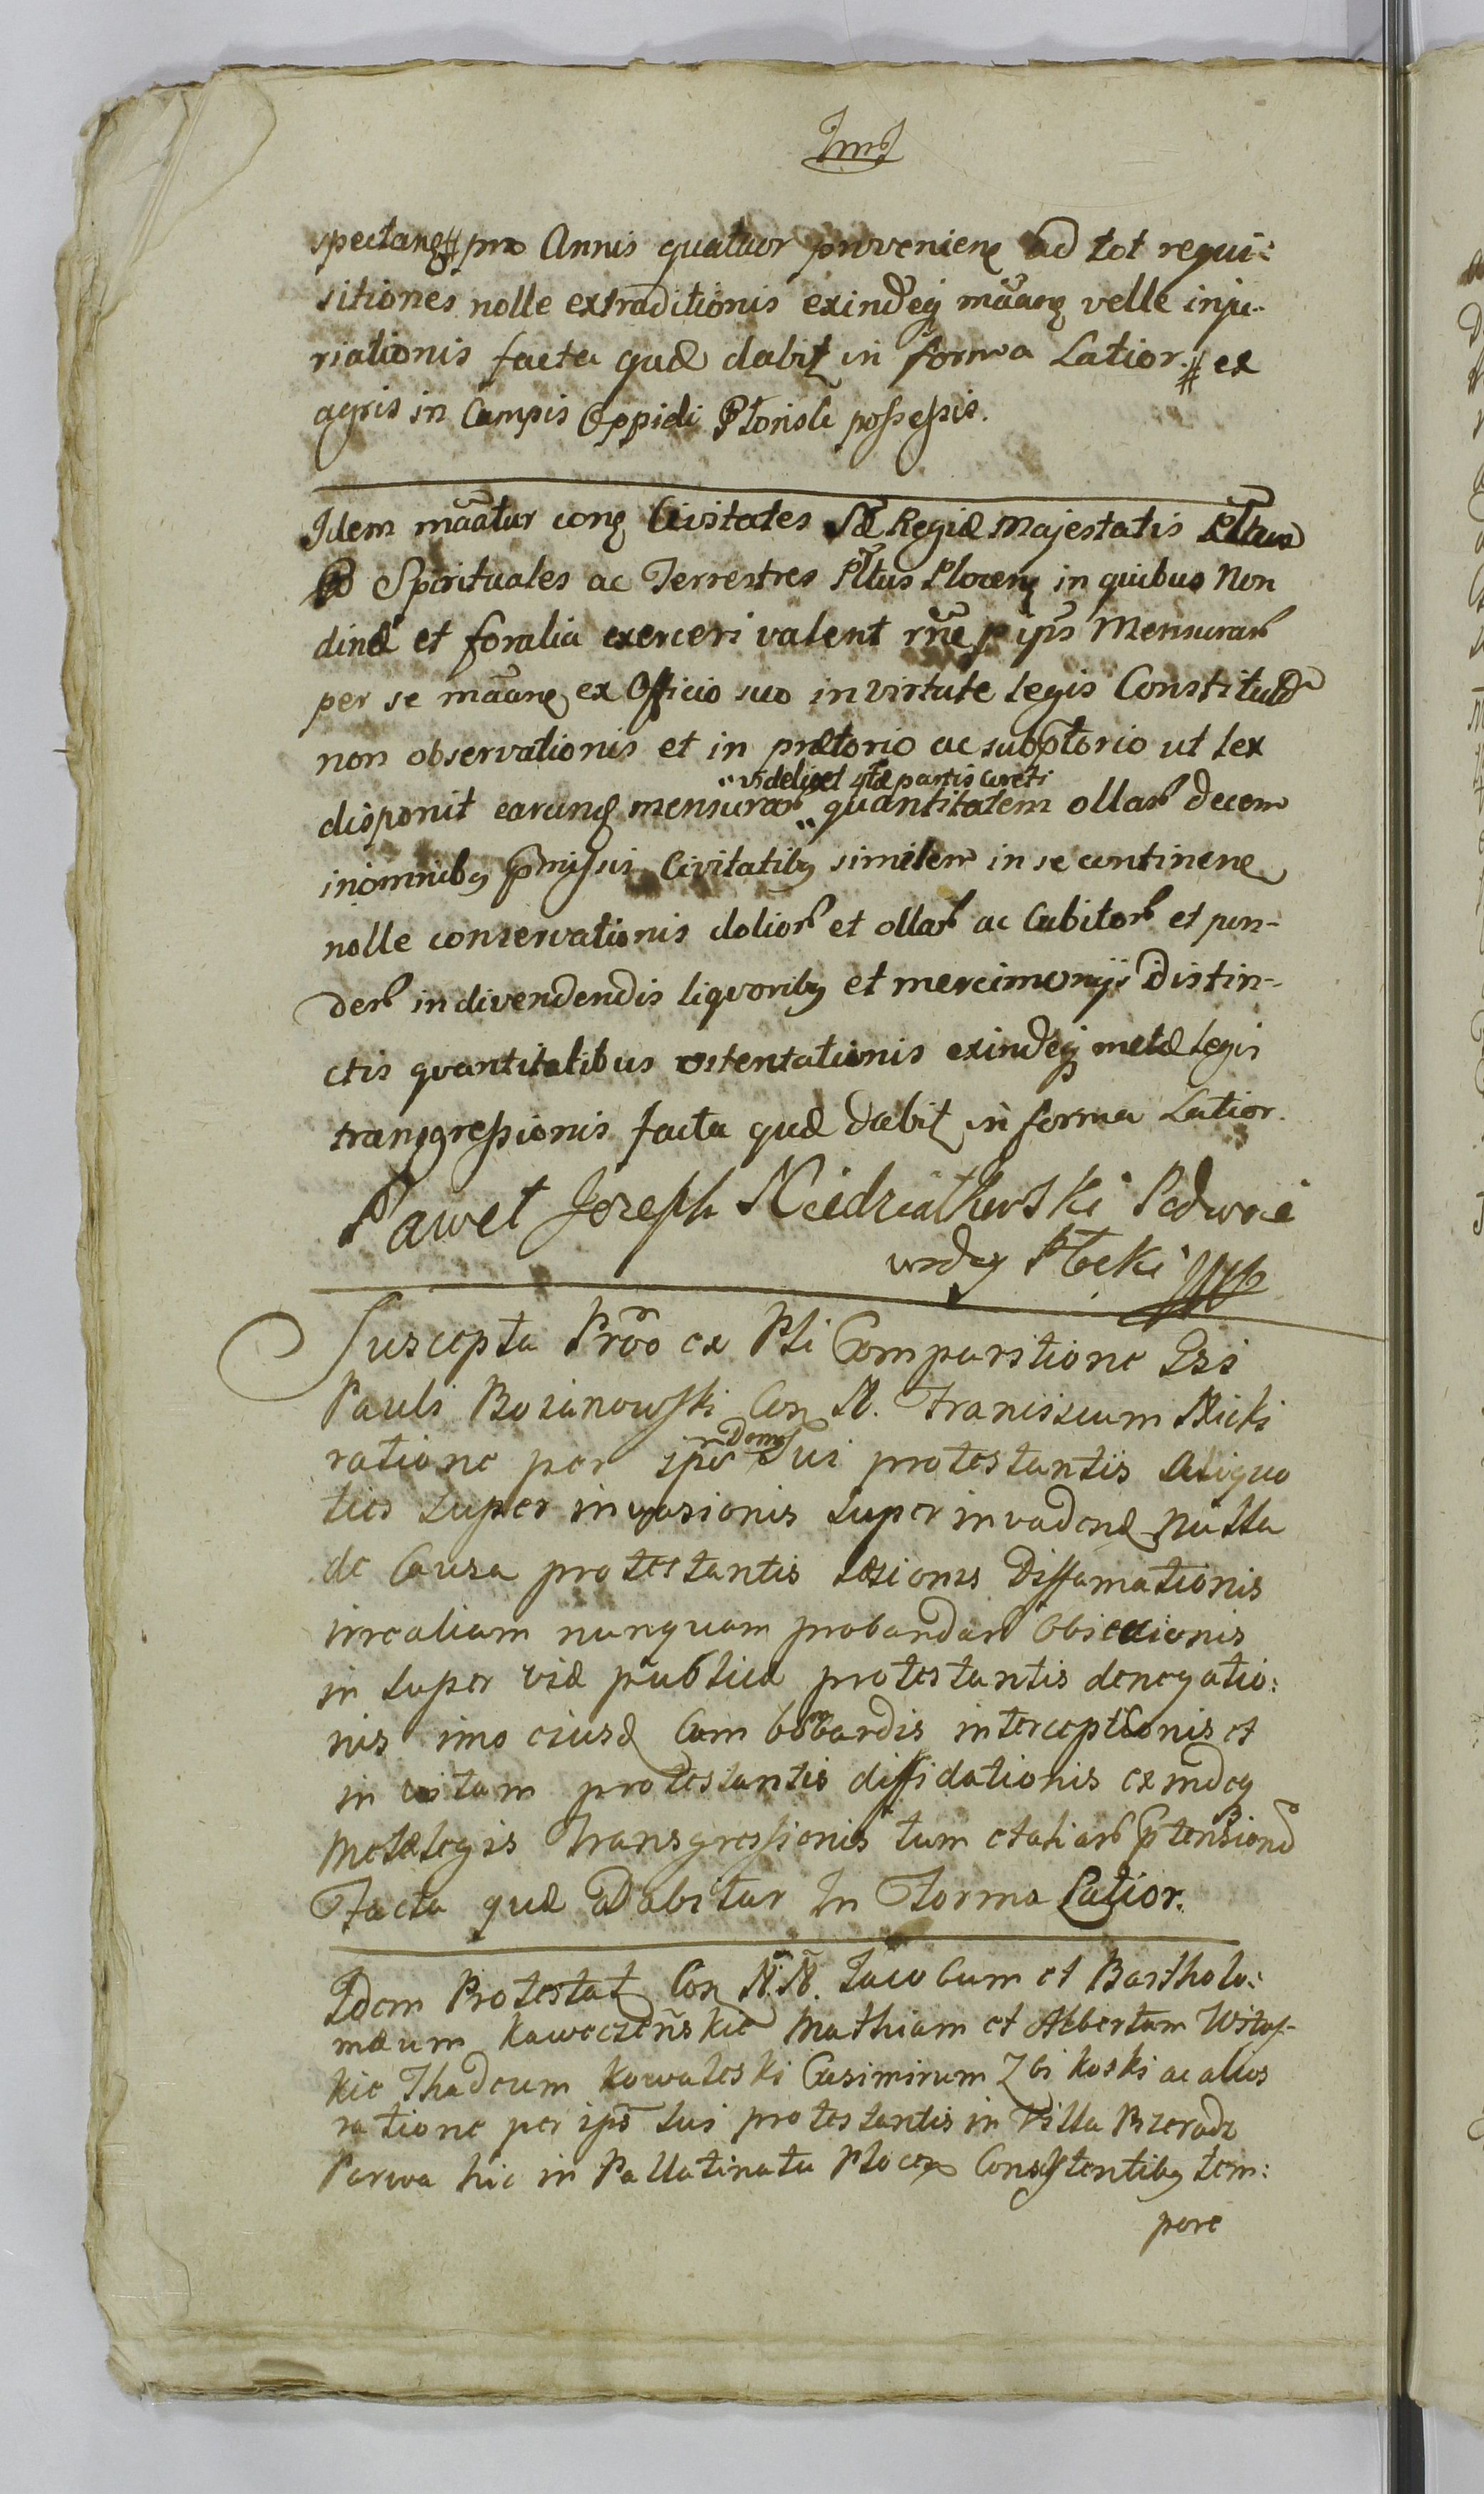 spectanq # pro Annis quatuor provenienq ad tot requi:
sitiones nolle extraditionis exindeq mãanq velle inju-
riationis facta quæ dabit in forma Latior. # ex
agris in Campis Oppidi possessis.
Idem mãatur conq Civitates Sæ Regiæ Majestatis Pltus
Spirituales ac Terrestres Pltus Plocenq in quibus Non
dinæ et foralia exerceri valent rñe p ipˉs Mensurar
per se mãanq ex Officio suo in virtute legis Constitut
non observationis et in prætorio ac subptorio ut lex
videlicet qtæ partis coreti
disponit earunq mensurar quantitatem ollar decem
in omnibq pmissis Civitatibq similem in se continenq
nolle conservationis dolior et ollar ac Cubitor et pon-
der in divendendis liquoribq et mercimonijs distin-
ctis quantitatibus ostentationis exindeq metæ legis
transgressionis facta quæ dabit in forma Latior.
Paweł Jozeph Niedziałkowski Podwoie
wodzy Płocki
Suscepta Prõo ex Pli Comparitione Gsi
Pauli Bozanowski Con N. Franisscum Nicki
Domq
ratione per ipõ Sui protestantis aliquo
ties super invasionis super invadenq nulla
de Causa protestantis læsionis Diffamationis
irrealium nunquam probandar Obiectionis
in super viæ publicæ protestantis denegatio:
nis imo eiusq Cum bombardis interceptionis et
in vitam protestantis diffidationis exindeq
Metælegis transgressionis tum et aliar ptensionũ
Facta quæ Dabitur In Forma Latior.
Idem Protestat Con N.N. Iacobum et Bartholo:
mæum Kaweczeńskie Mathiam et Albertum Witos-
kie Thadeum Kowaleski Casimirum Zbikoski ac alios
ratione per ipõ sui protestantis in Villa
Parva hic in Pallatinatu Plocen Consistentibq tem:
pore